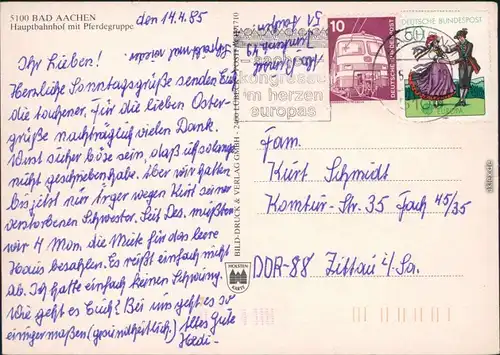 5100 BAD AACHEN
Hauptbahnhof mit Pferdegruppe
den 14.4.85
Ihr Lieben!
Herzliche Sonntagsgrüße senden Euch
die Aachener. Für die lieben Oster-
grüße nachträglich vielen Dank.
Wirst sicher böse sein, daß ich solange
nicht geschrieben habe. Aber wir hatten
bis jetzt nur Ärger wegen Kurt seiner
verstorbenen Schwester. Seit Dez. mußten
wir 4 Mon. die Miete für das leere
Haus bezahlen. Es reißt einfach nicht
ab. Ich hatte einfach keinen Schwung.
Wie geht es Euch? Bei uns geht es so
einigermaßen (gesundheitlich). Alles Gute
Hedi -
BILD-DRUCK & VERLAG GMBH · 2400 LÜBECK
HOLSTEN
KARTE
kongresse
im herzen
europas
10
DEUTSCHE BUNDESPOST
DEUTSCHE BUNDESPOST
EUROPA
51 Aachen
Fam.
Kurt Schmidt
Komtur-Str. 35 Fach 45/35
DDR-88 Zittau i/Sa.